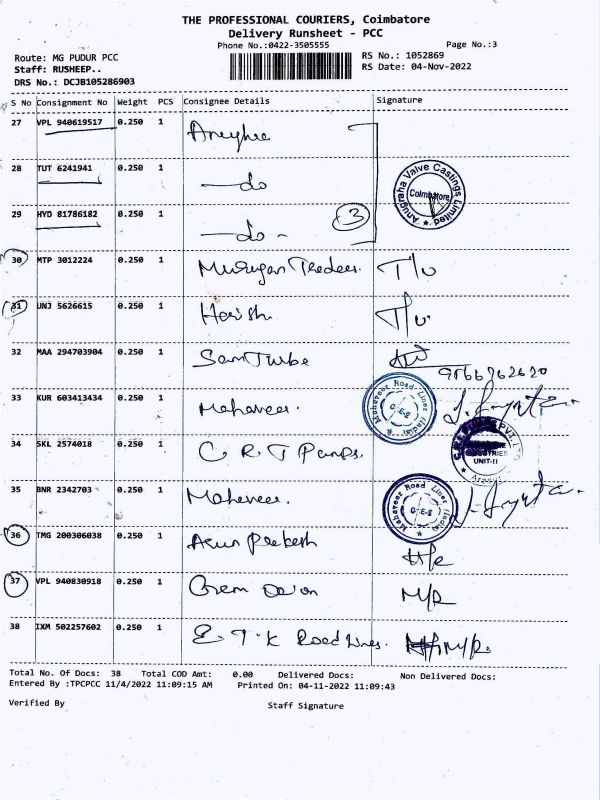 THE PROFESSIONAL COURIERS, Coimbatore
Delivery Runsheet - PCC
Phone No.:0422-3505555
Page No.:3
Route: MG PUDUR PCC
RS No.: 1052869
Staff: RUSHEEP..
RS Date: 04-Nov-2022
DRS No.: DCJB105286903
S No Consignment No Weight PCS Consignee Details Signature
27 VPL 940619517 0.250 1
28 TUT 6241941 0.250 1 do
Anugraha Valve Castings Limited
Coimbatore
29 HYD 81786182 0.250 1 do 3
30 MTP 3012224 0.250 1 Murugan Tredees.
31 UNJ 5626615 0.250 1 Harish
32 MAA 294703904 0.250 1
33 KUR 603413434 0.250 1 Mahaveer.
Mahaveer Road Lines (India)
34 SKL 2574018 0.250 1 C R I Pumps.
UNIT-II
35 BNR 2342703 0.250 1 Mahaveer.
Mahaveer Road Lines (India)
36 TMG 200306038 0.250 1 Arun Prekesh
37 VPL 940830918 0.250 1
38 IXM 502257602 0.250 1 E.T.K Road Lines.
Total No. Of Docs: 38 Total COD Amt: 0.00 Delivered Docs: Non Delivered Docs:
Entered By :TPCPCC 11/4/2022 11:09:15 AM Printed On: 04-11-2022 11:09:43
Verified By Staff Signature